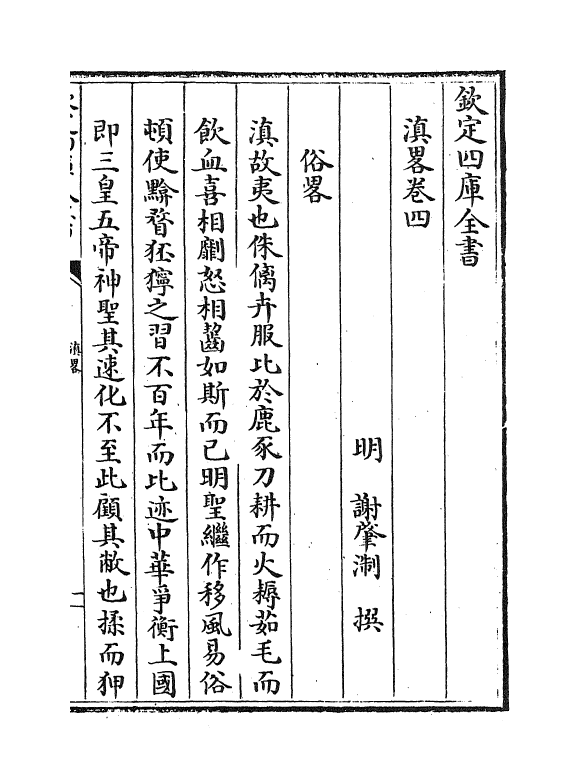 欽定四庫全書
滇畧卷四
明 謝肇淛 撰
俗畧
滇故夷也侏㒧卉服比於鹿豕刀耕而火耨茹毛而
飲血喜相劘怒相齧如斯而已明聖繼作移風易俗
頓使黔瞀狉獰之習不百年而比迹中華爭衡上國
即三皇五帝神聖其速化不至此顧其敝也揉而狎
滇畧